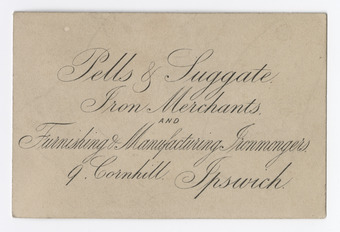 Pells & Suggate.
Iron Merchants.
AND
Furnishing & Manufacturing Ironmongers,
9, Cornhill. Ipswich.